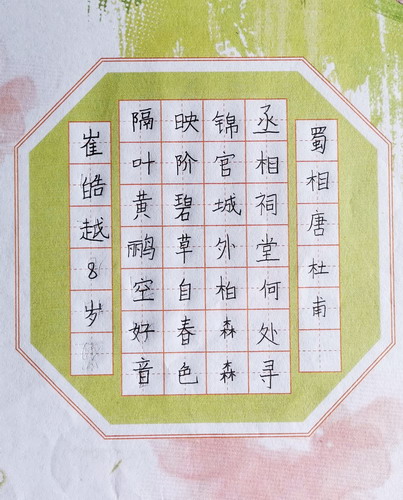 蜀相唐杜甫
丞相祠堂何处寻
锦官城外柏森森
映阶碧草自春色
隔叶黄鹂空好音
崔皓越8岁